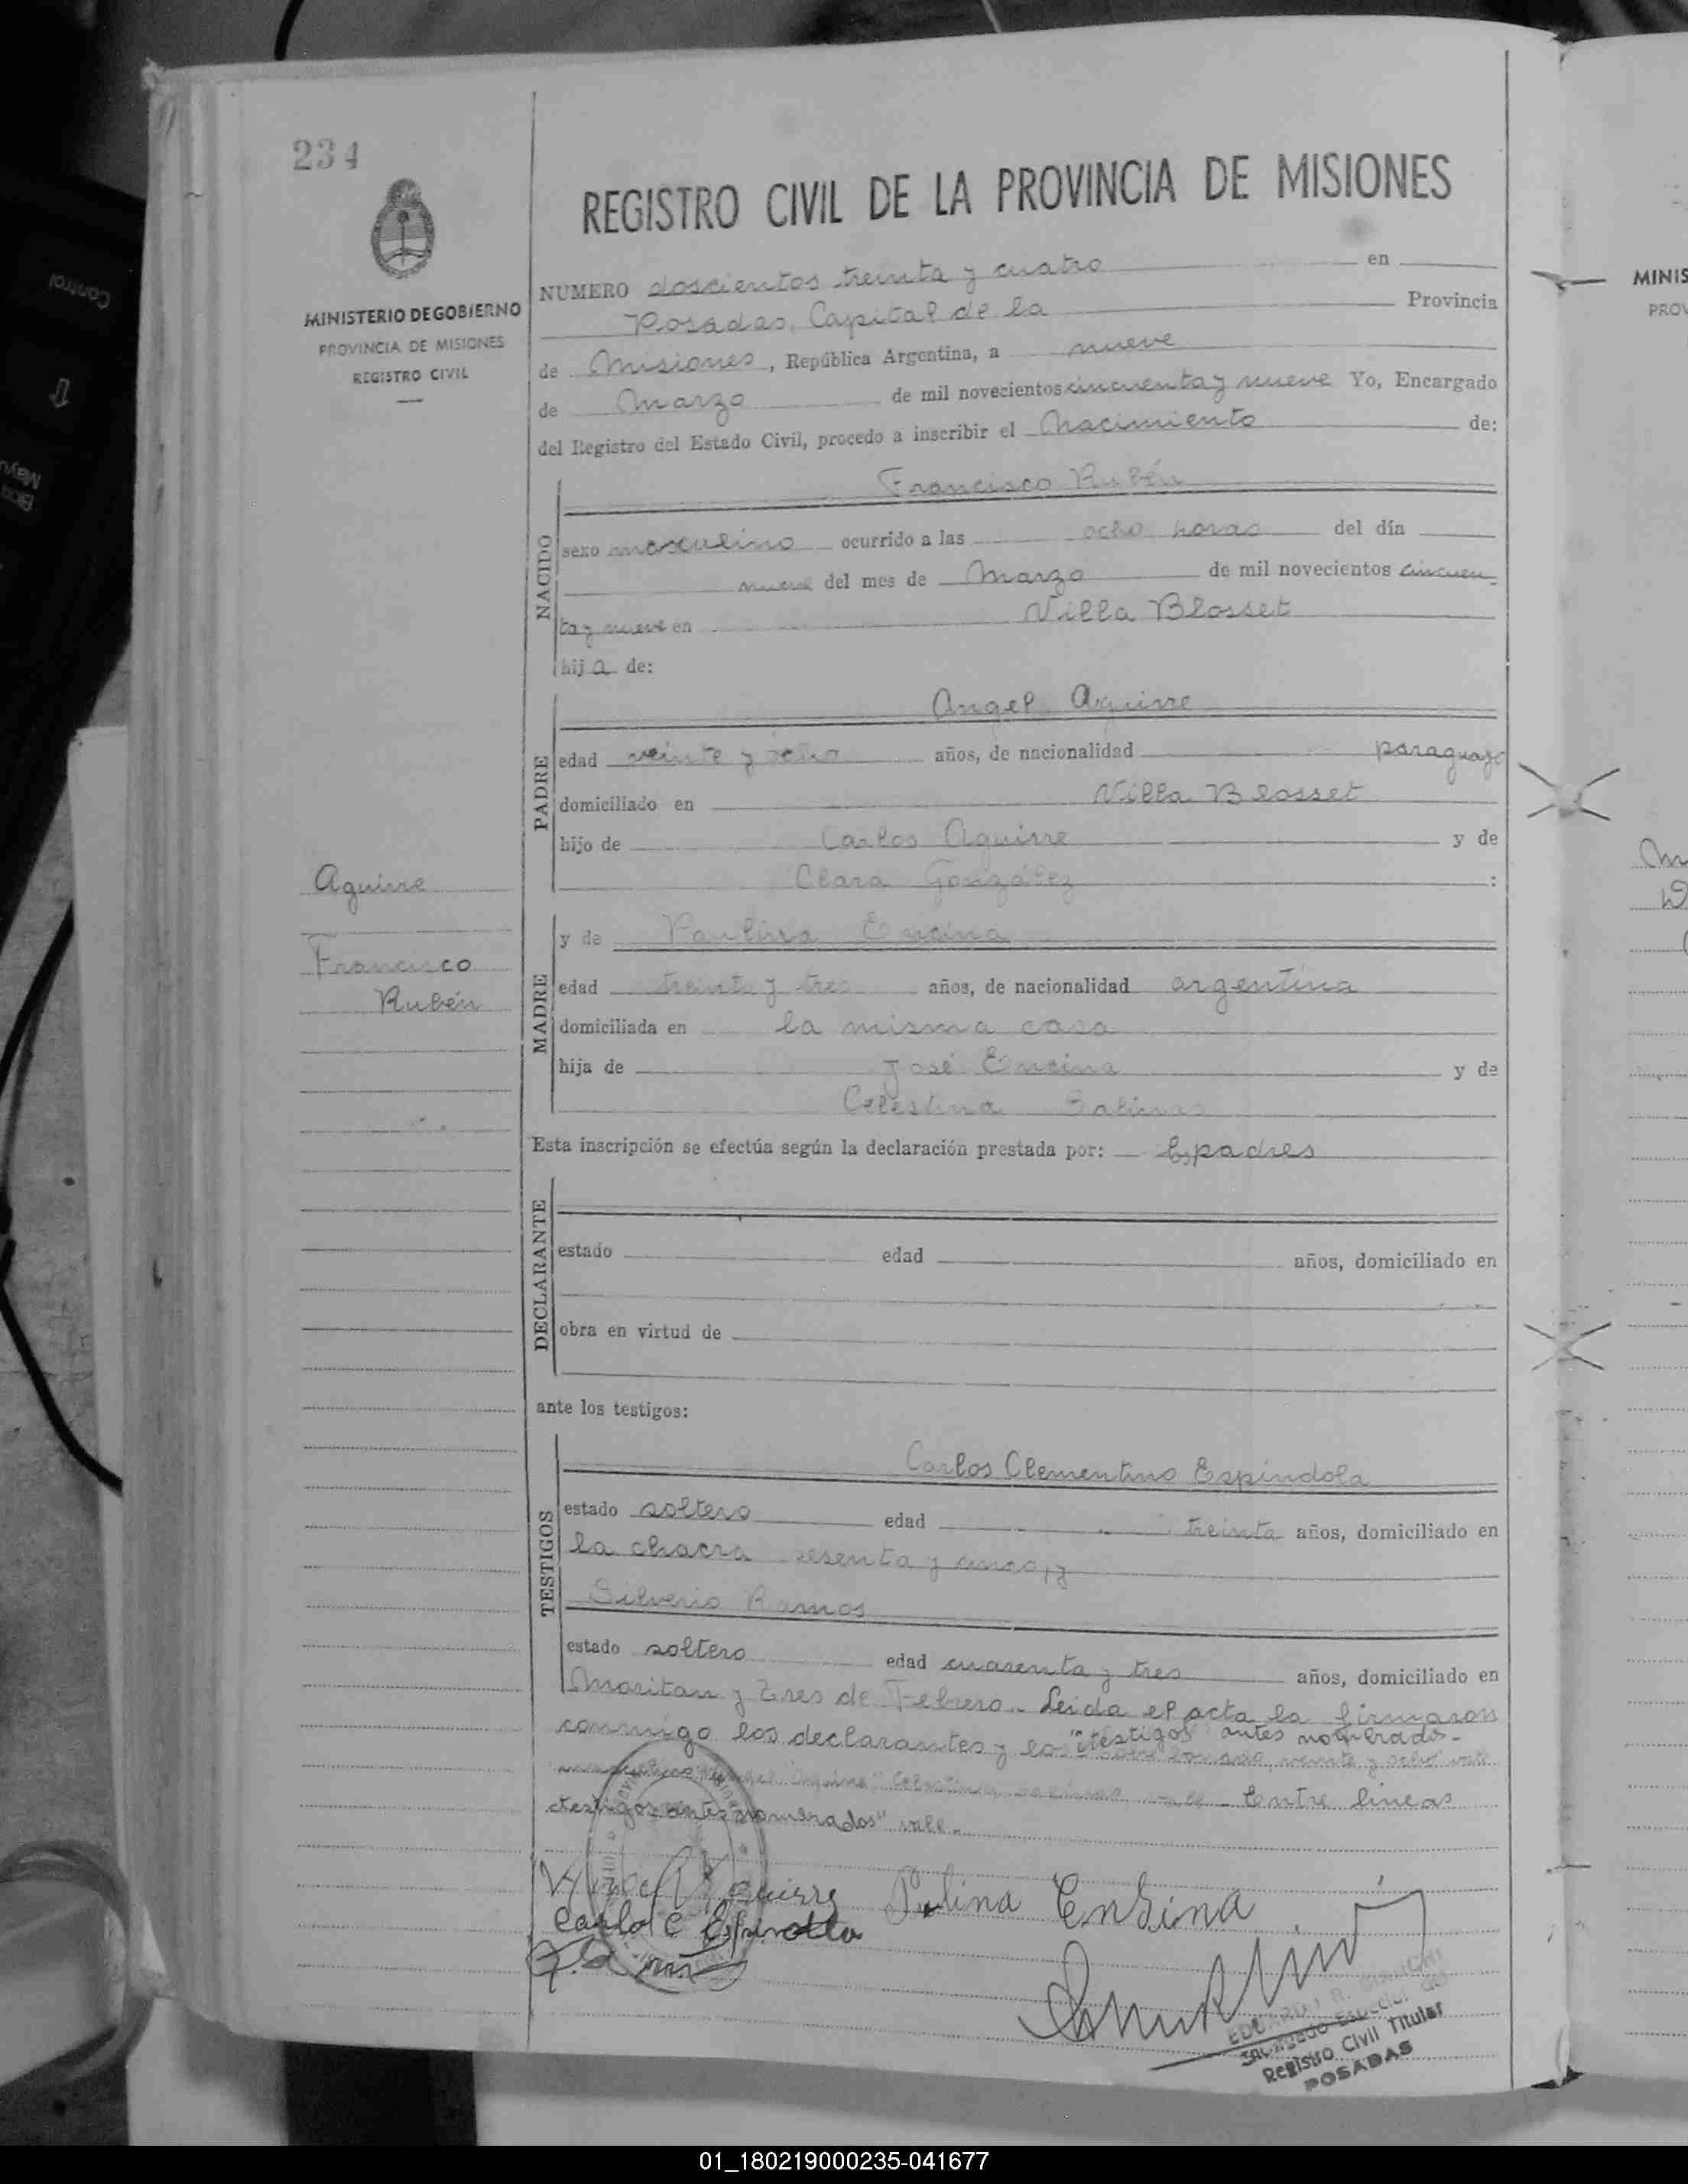 234
REGISTRO CIVIL DE LA PROVINCIA DE MISIONES
MINISTERIO DE GOBIERNO
PROVINCIA DE MISIONES
REGISTRO CIVIL
NUMERO doscientos treinta y cuatro en
Posadas, Capital de la Provincia
de Misiones, República Argentina, a nueve
de Marzo de mil novecientos cincuenta y nueve Yo, Encargado
del Registro del Estado Civil, procedo a inscribir el Nacimiento de:
NACIDO
Francisco Rubén
sexo masculino ocurrido a las ocho horas del día
nueve del mes de Marzo de mil novecientos cincuen
ta y nueve en Villa Blosset
hij a de:
PADRE
Angel Aguirre
edad veinte y ocho años, de nacionalidad paraguayo
domiciliado en Villa Blosset
hijo de Carlos Aguirre y de
Clara González :
Aguirre
Francisco
Rubén
MADRE
y de Paulina Encina
edad treinta y tres años, de nacionalidad argentina
domiciliada en la misma casa
hija de José Encina y de
Celestina Salinas
Esta inscripción se efectúa según la declaración prestada por: los padres
DECLARANTE
estado edad años, domiciliado en
obra en virtud de
ante los testigos:
TESTIGOS
Carlos Clementino Espíndola
estado soltero edad treinta años, domiciliado en
la chacra sesenta y cinco, y
Silverio Ramos
estado soltero edad cuarenta y tres años, domiciliado en
Moritan y Tres de Febrero. Leida el acta la firmaron
conmigo los declarantes y los "testigos antes nombrados-
veinte y ocho" vale
Aguirre" Celestina Entre lineas
"testigos antes nombrados" vale-
Aguirre Pulina Ensina
Carlo C Espindola
Registro Civil Titular
POSADAS
Control
MINIS
PROV
01_180219000235-041677